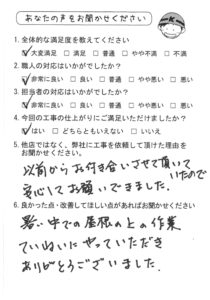 あなたの声をお聞かせください
1. 全体的な満足度を教えてください
☑ 大変満足 □ 満足 □ 普通 □ やや不満 □ 不満
2. 職人の対応はいかがでしたか？
☑ 非常に良い □ 良い □ 普通 □ やや悪い □ 悪い
3. 担当者の対応はいかがでしたか？
☑ 非常に良い □ 良い □ 普通 □ やや悪い □ 悪い
4. 今回の工事の仕上がりにご満足いただけましたか？
☑ はい □ どちらともいえない □ いいえ
5. 他店ではなく、弊社に工事を依頼して頂けた理由を
お聞かせください。
以前からお付き合いさせて頂いて
いたので
安心してお願いできました。
6. 良かった点・改善してほしい点があればお聞かせください
暑い中での屋根の上の作業
ていねいにやっていただき
ありがとうございました。